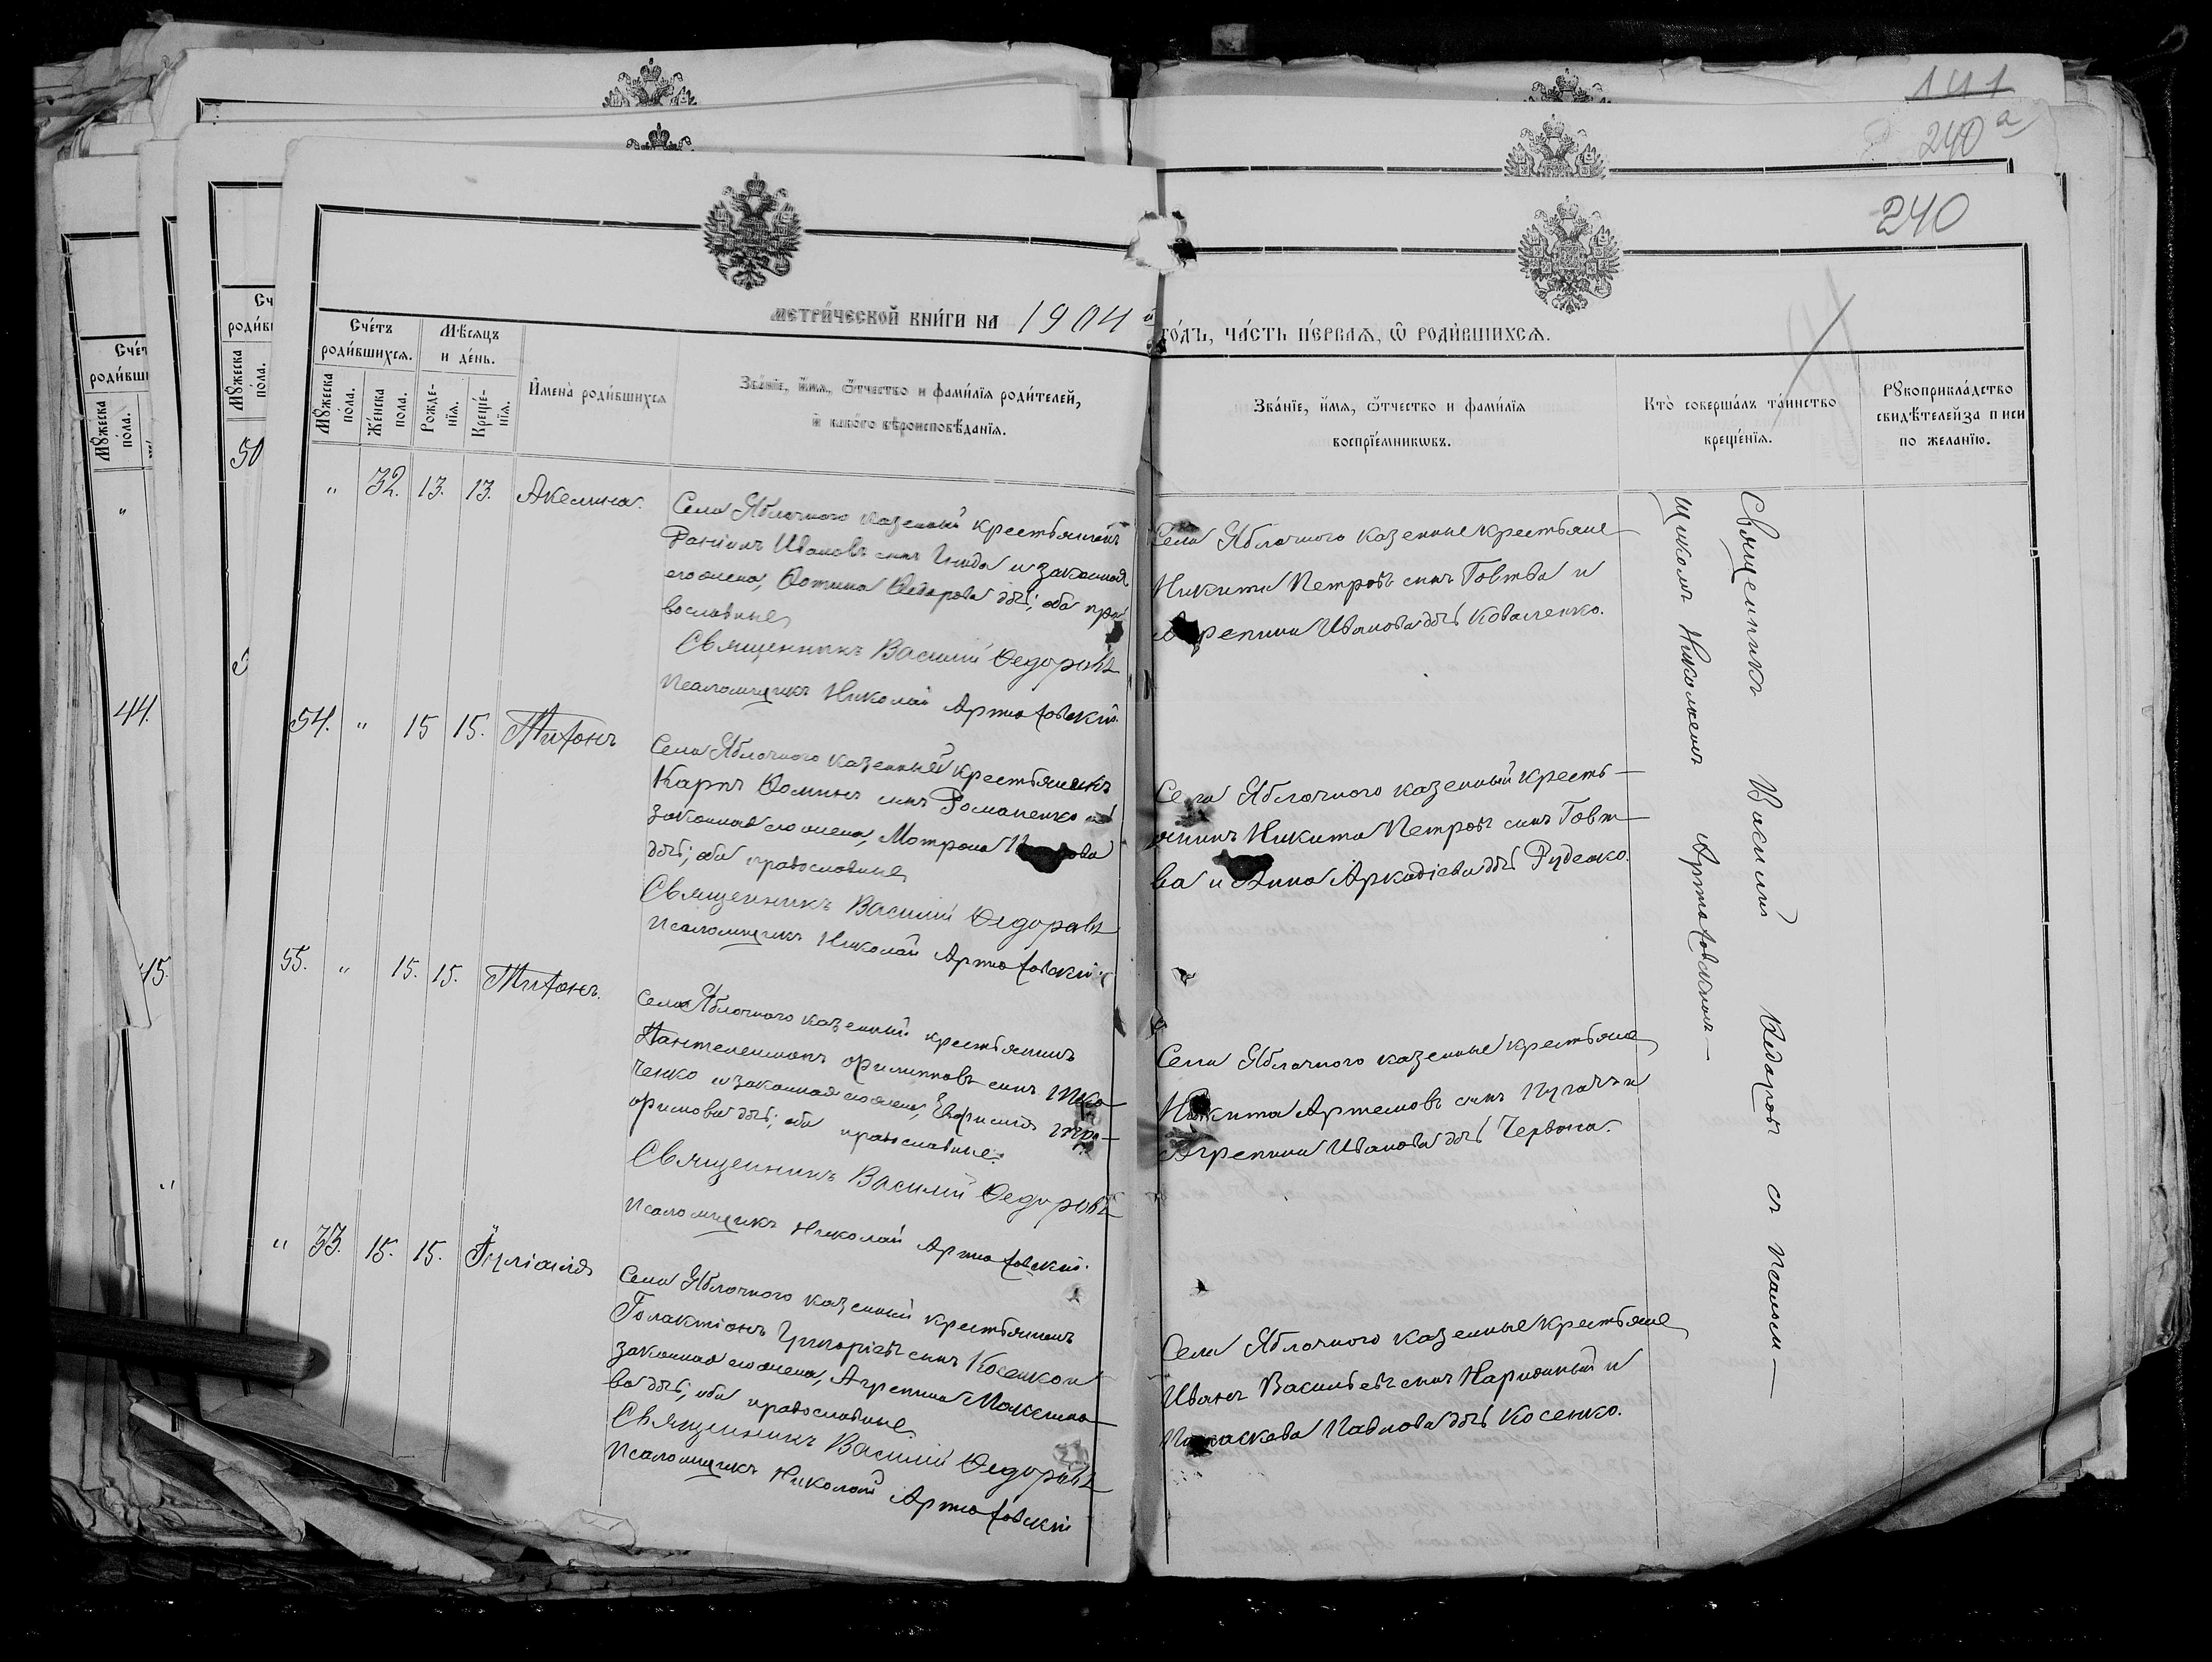 141
240 а
240
МЕТРИ́ЧЕСКОЙ КНИ́ГИ НА 1904 й
ГО́ДЪ, ЧА́СТЬ ПЕ́РВАЯ, Ѽ РОДИ́ВШИХСЯ.
Сче́тъ роди́вшихся.
Мѣ́сяцъ и де́нь.
Мꙋ́жеска по́ла.
Же́нска пола.
Рожде-нїя.
Креще́-нїя.
И҆мена̀ роди́вшихся
Зва́нїе, и҆́мя, ѻ҆́тчество и фами́лїя роди́телей,
и҆ како́го вѣроисповѣ́данїя.
Зва́нїе, и҆́мя, ѻ҆́тчество и фами́лїя
воспрїе́мниковъ.
Кто̀ соверша́лъ та́инство
креще́нїя.
Рꙋкоприкла́дство
свидѣ́телей за писи
по жела́нїю.
" 32. 13. 13. Акелина.
Села Яблочного казенный крестьянинъ
Данiилъ Ивановъ сынъ Гнида и законная
его жена, Фотина Федорова дчь; оба пра
вославные
Священникъ Василий Федоровъ
Псаломщикъ Николай Артюховскiй.
Села Яблочного казенные крестьяне
Никита Петровъ сынъ Говтва и
Агрепина Иванова дчь Коваленко.
54. " 15 15. Тихонъ
Села Яблочного казенный крестьянинъ
Карпъ Фоминъ сынъ Романенко и
законная его жена, Мотрона
дчь; оба православные
Священникъ Василий Федоровъ
Псаломщикъ Николай Артюховскiй
Села Яблочного казенный кресть-
янинъ Никита Петровъ сынъ Говт-
ва и Анна Аркадiева дчь Руденко.
55. " 15. 15. Тихонъ.
Села Яблочного казенный крестьянинъ
Пантелеимонъ Филипповъ сынъ Тка-
ченко и законная его жена, Евфимiя
дчь; оба православные.
Священникъ Василий Федоровъ
Псаломщикъ Николай Артюховскiй.
Села Яблочного казенные крестьяне
Никита Артемовъ сынъ Пугачъ и
Агрепина Иванова дчь Червона.
" 33. 15. 15. Iулiанiя
Села Яблочного казенный крестьянинъ
Галактiонъ Григорiевъ сынъ Косенко и
законная его жена, Агрепина Макси­мо-
ва дчь; оба православные
Священникъ Василий Федоровъ
Псаломщикъ Николай Артюховскiй
Села Яблочного казенные крестьяне
Иванъ Васильевъ сынъ Нарижный и
Параскева Павлова дчь Косенко.
Священникъ Василiй Федоровъ съ псалом-
щикомъ Николаемъ Артюховскимъ-
Сче́т
роди́вши
Мꙋ́жеска по́ла.
50
"
44.
45.
"